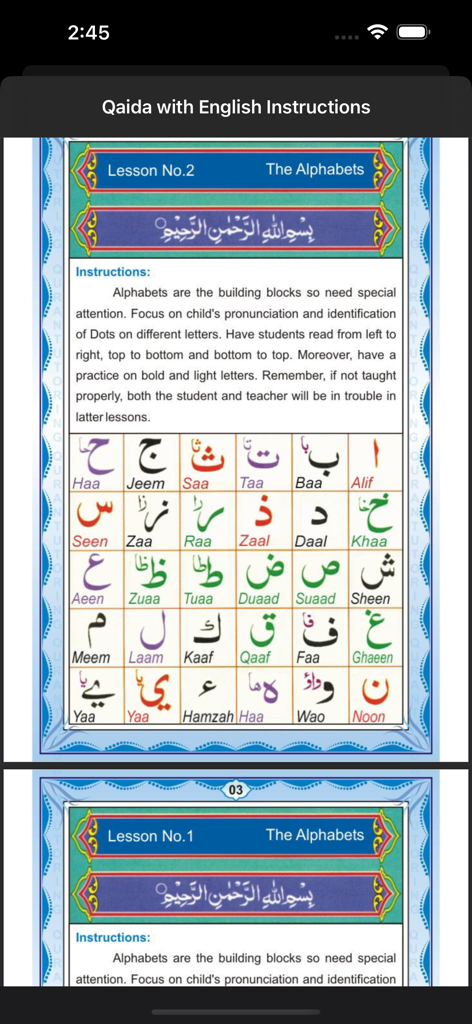 2:45
Qaida with English Instructions
Lesson No.2 The Alphabets
بِسْمِ اللهِ الرَّحْمٰنِ الرَّحِيْمِ
Instructions:
Alphabets are the building blocks so need special
attention. Focus on child's pronunciation and identification
of Dots on different letters. Have students read from left to
right, top to bottom and bottom to top. Moreover, have a
practice on bold and light letters. Remember, if not taught
properly, both the student and teacher will be in trouble in
latter lessons.
ا ب با ت تا ث ثا ج ح حا
Haa Jeem Saa Taa Baa Alif
خ خا د ذ ر را ز زا س
Seen Zaa Raa Zaal Daal Khaa
ش ص ض ط طا ظ ظا ع
Aeen Zuaa Tuaa Duaad Suaad Sheen
غ ف فا ق ك ل م
Meem Laam Kaaf Qaaf Faa Ghaeen
ن و واؤ ه ها ء ي يا ے يا
Yaa Yaa Hamzah Haa Wao Noon
03
Lesson No.1 The Alphabets
بِسْمِ اللهِ الرَّحْمٰنِ الرَّحِيْمِ
Instructions:
Alphabets are the building blocks so need special
attention. Focus on child's pronunciation and identification